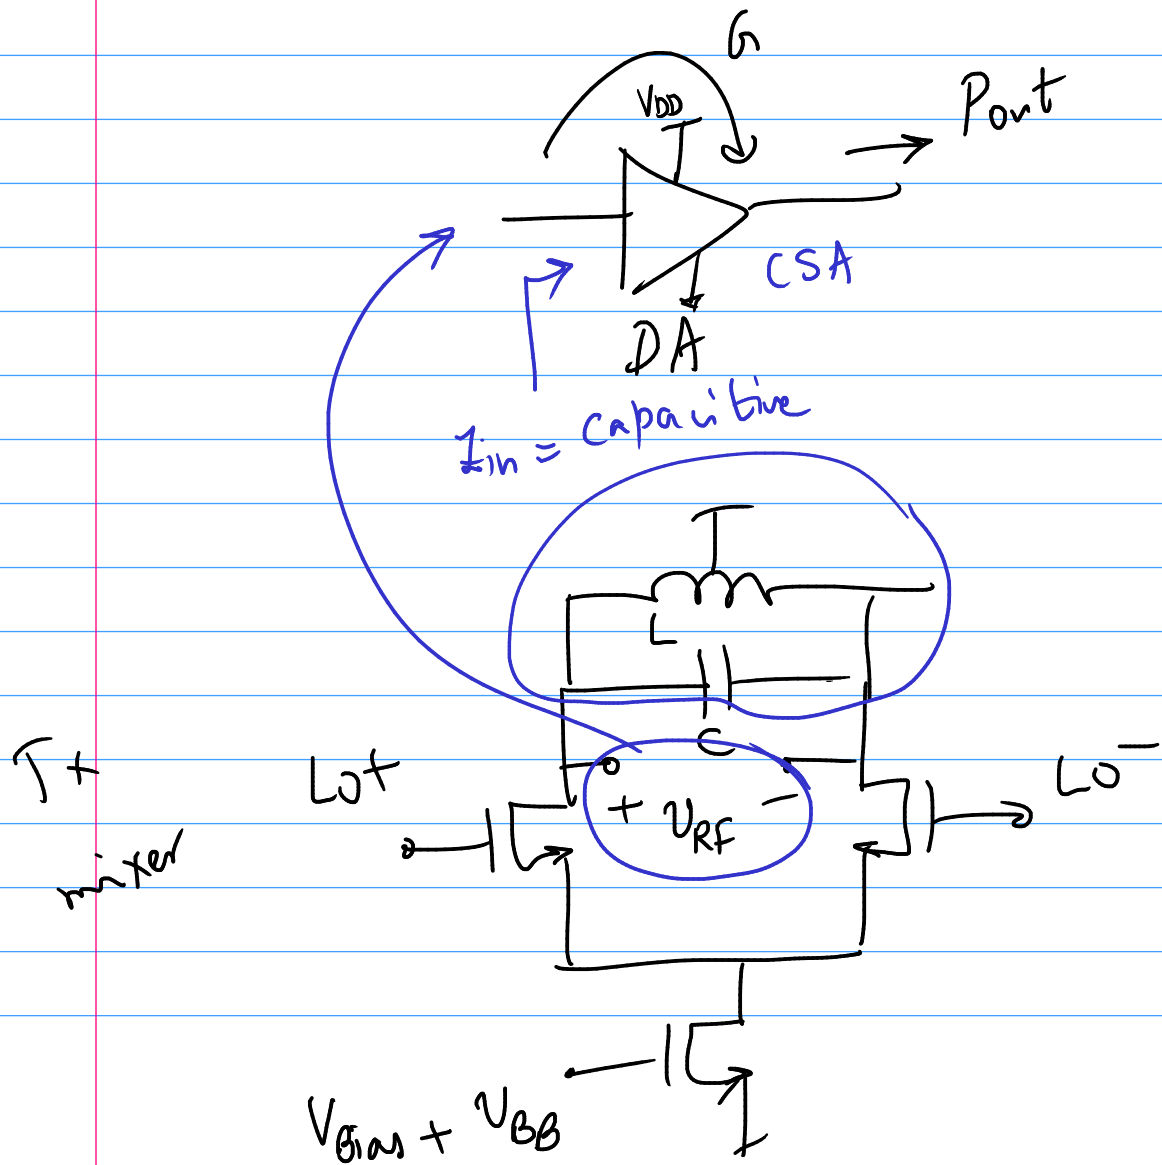 G
VDD
Pout
CSA
DA
Zin = capacitive
L
C
Tx
mixer
LO+
LO-
+ VRF -
VBias + VBB